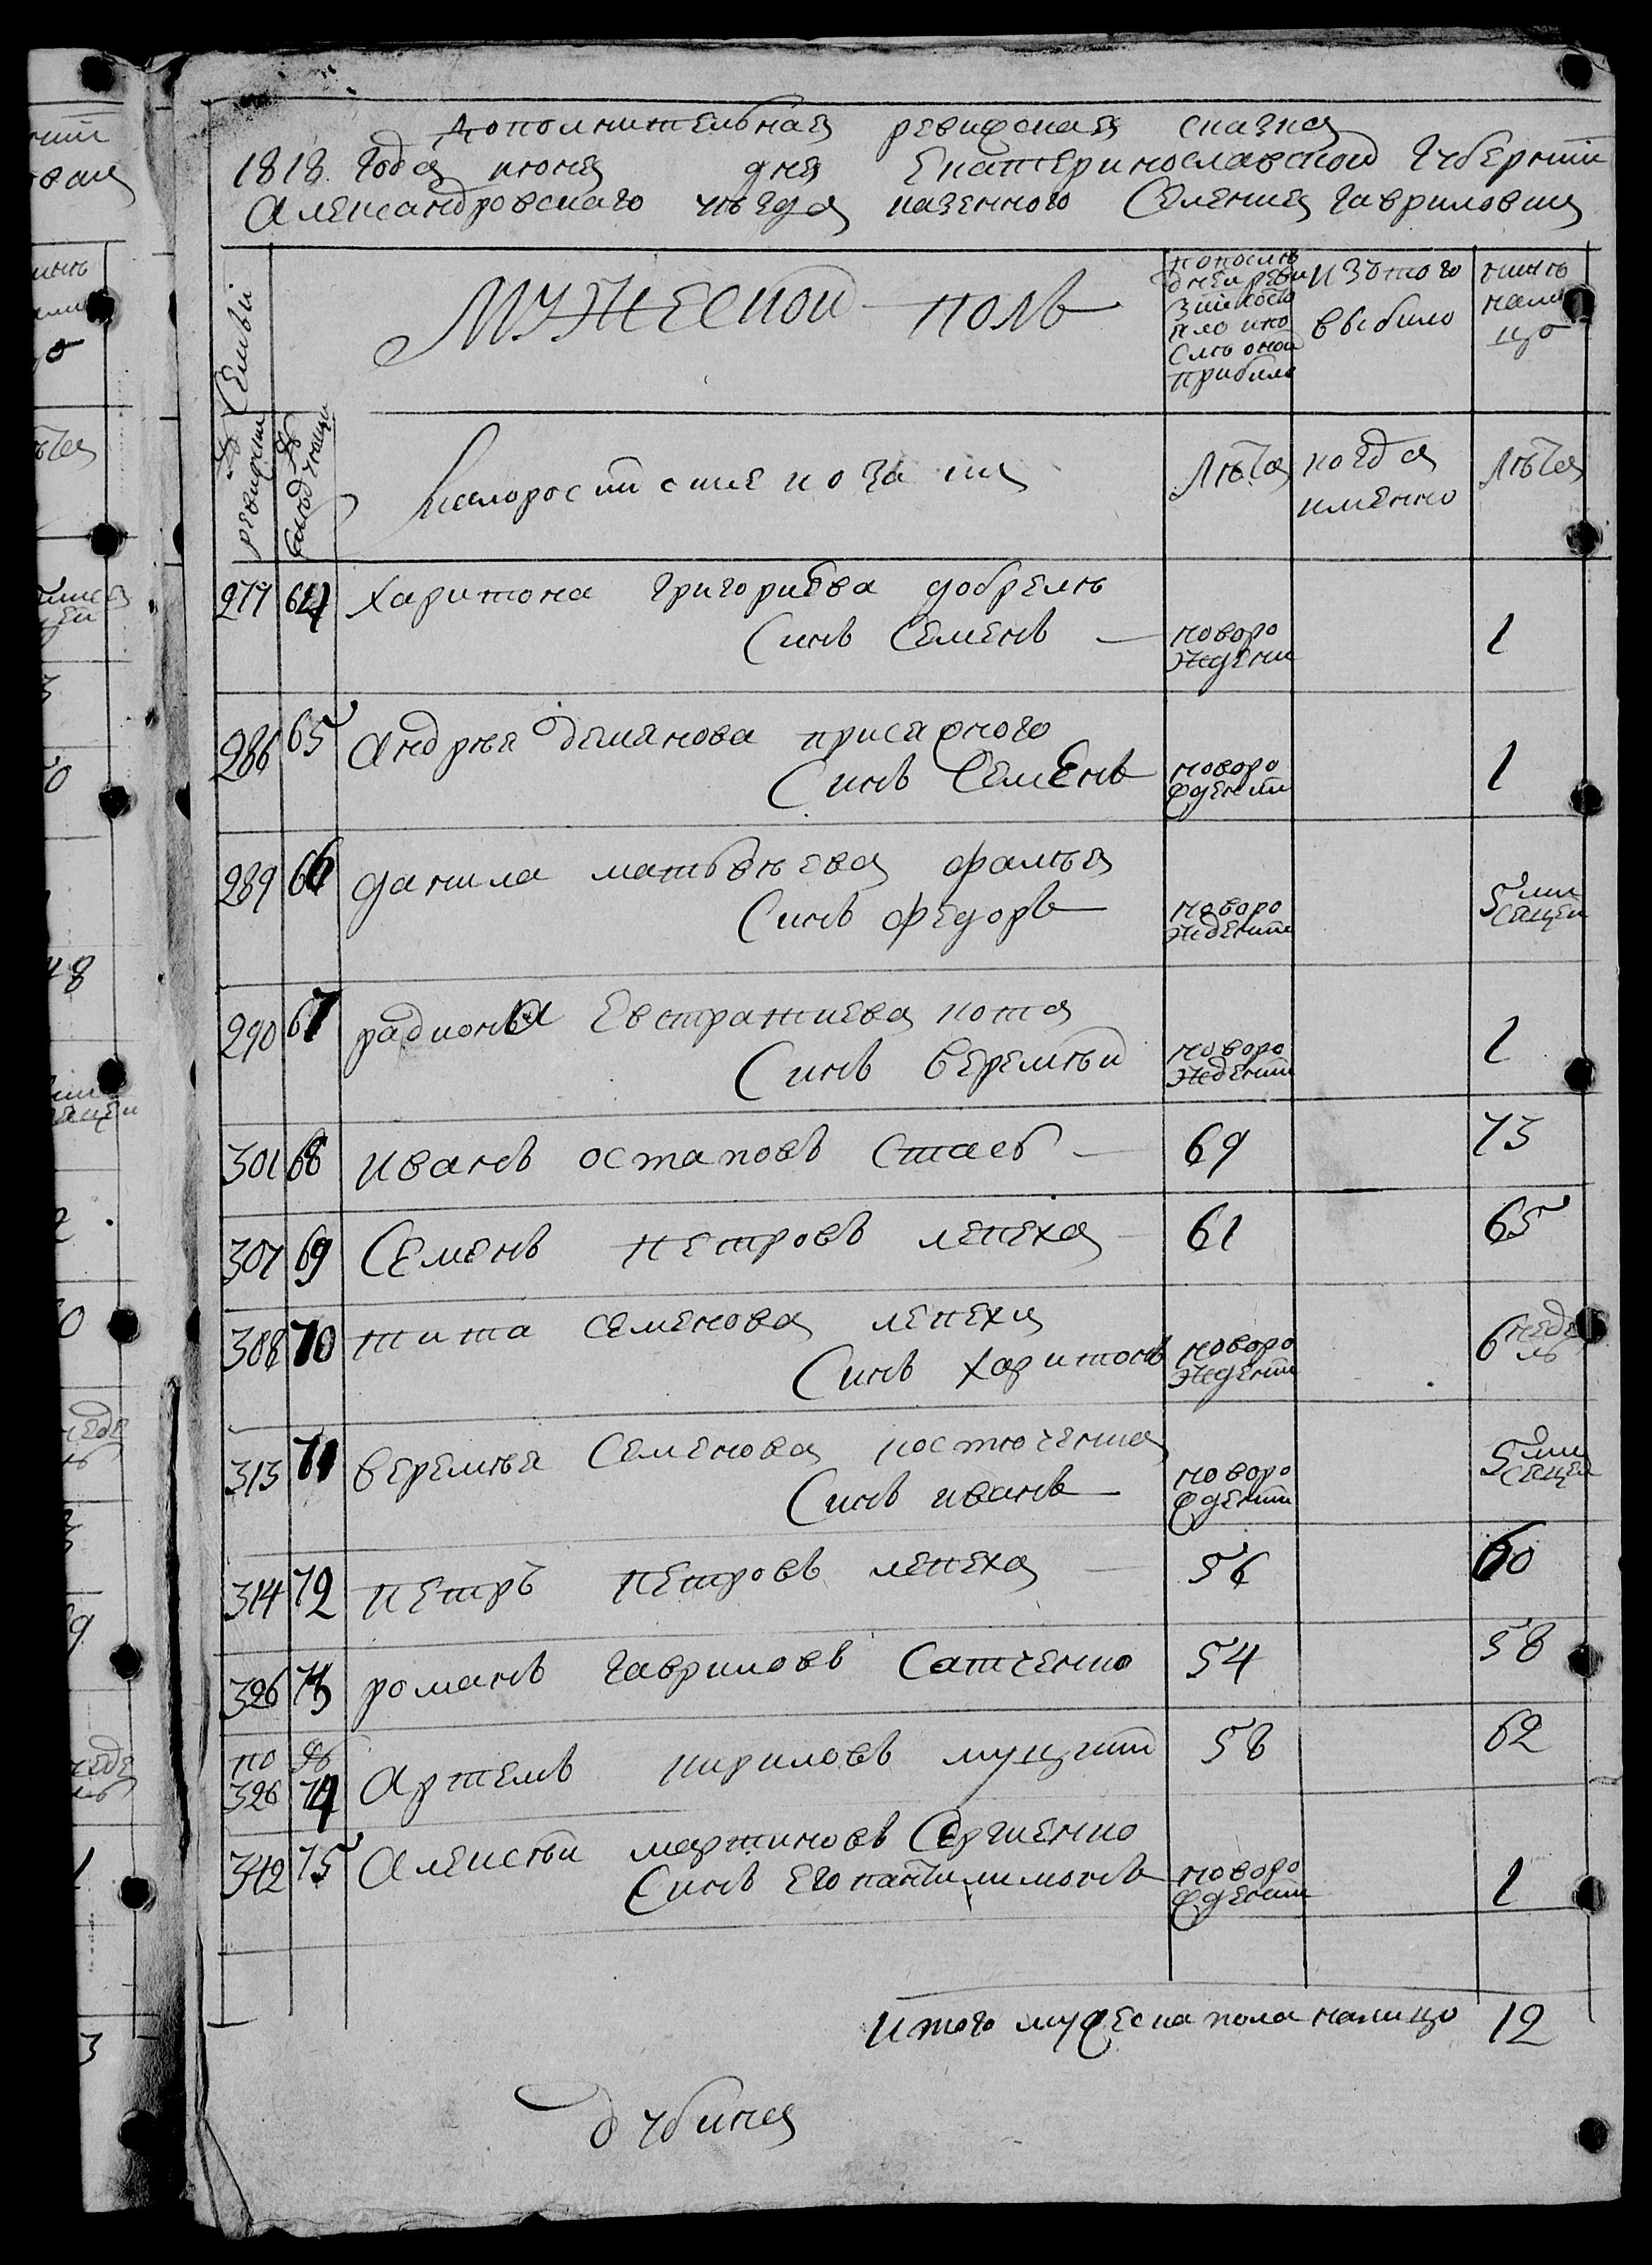 дополнителъная ревизская сказка
1818 Года июня дня Екатеринославской Губернии
Александровского уъзда казенного Селения Гавриловки
Семъи
№ ревизски
№
Мужеской полъ
по послъ
дней реви
зии состо
яло и по
слъ оной
прибило
изъ того
выбило
нинъ
нали
цо
Малороссийские козаки
Лъта
когда
именно
Лъта
277 64 Харитона Григориева добрелъ
Синъ Семенъ новоро
ждени 1
286 65 Андръя демянова присяжного
Синъ Семенъ новоро
жденни 1
289 66 данила матвъева
Синъ федоръ новоро
ждении 5 ми
сецей
290 67 радиона Евстратиева кота
Синъ Веремъй новоро
ждении 1
301 68 иванъ остаповъ Стаеб 69 73
307 69 Семенъ петровъ лепеха 61 65
308 70 тита семенова лепехи
Синъ Харитонъ новоро
ждении 6 недъ
лъ
313 71 веремъя Семенова костюченка
Синъ иванъ новоро
ждении 5 ми
сецей
314 72 петръ петровъ лепеха 56 60
326 73 романъ гавриловъ Сатченко 54 58
по №
326 74 Артемъ кириловъ муцкий 58 62
342 75 Алексъй мартиновъ Сергиенко
Синъ Его пантилимонъ новоро
ждении 1
Итого мужеска пола налицо 12
дубина